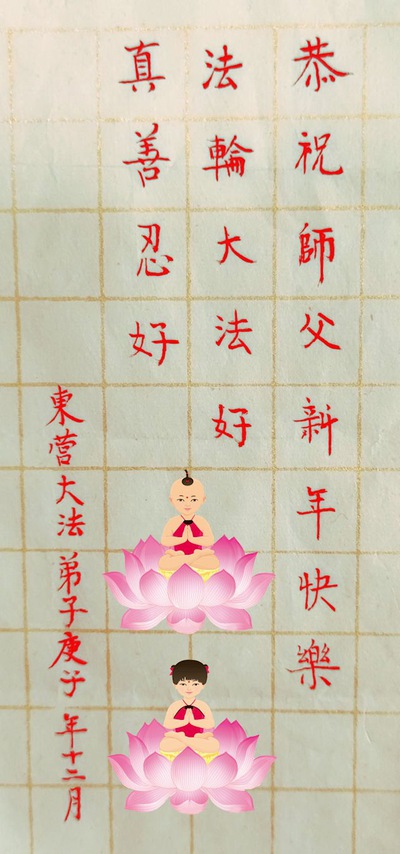 恭祝師父新年快樂
法輪大法好
真善忍好
東營大法弟子庚子年十二月